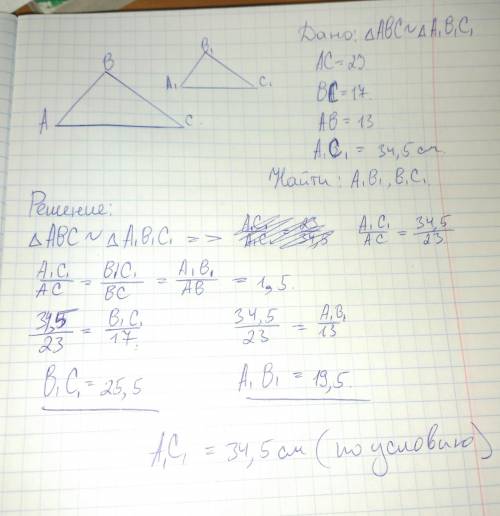 Дано: △ABC ~ △A₁B₁C₁
AC = 23
BC = 17.
AB = 13
A₁C₁ = 34,5 см.
Найти: A₁B₁, B₁C₁
B
A
C
B₁
A₁
C₁
Решение:
△ABC ~ △A₁B₁C₁ => A₁C₁/AC = 34,5/23
A₁C₁/AC = B₁C₁/BC = A₁B₁/AB = 1,5.
34,5/23 = B₁C₁/17; 34,5/23 = A₁B₁/13
B₁C₁ = 25,5 A₁B₁ = 19,5.
A₁C₁ = 34,5 см (по условию)